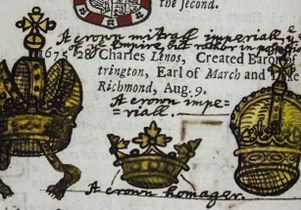 the second.
A crown mitrall imperiall
1675 28 Charles Lenos, Created Baron of
trington, Earl of March and
Richmond, Aug. 9.
A crown impe-
riall.
A crown homager.